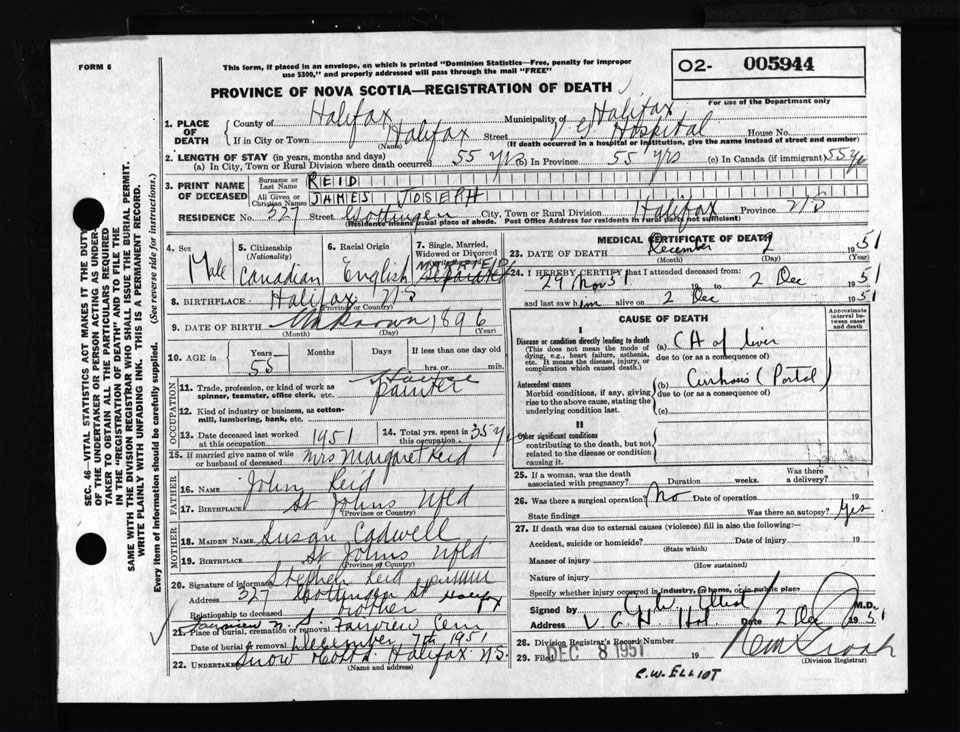 FORM 6
This form, if placed in an envelope, on which is printed "Dominion Statistics—Free, penalty for improper
use $300," and properly addressed will pass through the mail "FREE"
O2- 005944
For use of the Department only
PROVINCE OF NOVA SCOTIA—REGISTRATION OF DEATH
1. PLACE OF DEATH
County of Halifax Municipality of Halifax
If in City or Town Halifax (Name) Street V. G. Hospital House No.
(If death occurred in a hospital or institution, give the name instead of street and number)
2. LENGTH OF STAY (in years, months and days)
(a) In City, Town or Rural Division where death occurred 55 yrs (b) In Province 55 yrs (c) In Canada (if immigrant) 55 y
3. PRINT NAME OF DECEASED
Surname or Last Name REID
All Given or Christian Names JAMES JOSEPH
RESIDENCE No. 327 Street Gottingen City, Town or Rural Division Halifax Province N S
(Residence means usual place of abode. Post Office Address for residents in rural parts not sufficient)
4. Sex Male
5. Citizenship (Nationality) Canadian
6. Racial Origin English
7. Single, Married, Widowed or Divorced
MARRIED
Separated
8. BIRTHPLACE Halifax N S
(Province or Country)
9. DATE OF BIRTH Unknown 1896
(Month) (Day)
10. AGE in Years 55 Months Days If less than one day old
hrs. or min.
OCCUPATION
11. Trade, profession, or kind of work as spinner, teamster, office clerk, etc. painter
12. Kind of industry or business, as cotton-mill, lumbering, bank, etc.
13. Date deceased last worked at this occupation 1951
14. Total yrs. spent in this occupation 35 y
15. If married give name of wife or husband of deceased Mrs Margaret Reid
FATHER
16. NAME John Reid
17. BIRTHPLACE St Johns Nfld
(Province or Country)
MOTHER
18. MAIDEN NAME Susan Cadwell
19. BIRTHPLACE St Johns Nfld
(Province or Country)
20. Signature of informant Stephen Reid
Address 327 Gottingen St Halifax
Relationship to deceased brother
Fairview N. S.
21. Place of burial, cremation or removal Fairview Cem
Date of burial or removal December 7th 1951
22. Undertaker Snow Halifax N.S.
(Name and address)
MEDICAL CERTIFICATE OF DEATH
23. DATE OF DEATH December 2 1951
(Month) (Day) (Year)
24. I HEREBY CERTIFY that I attended deceased from:
29 Nov 51 19 to 2 Dec 1951
and last saw him alive on 2 Dec 1951
CAUSE OF DEATH
Approximate interval between onset and death
I
Disease or condition directly leading to death
(This does not mean the mode of dying, e.g., heart failure, asthenia, etc. It means the disease, injury, or complication which caused death.)
(a) CA of liver
due to (or as a consequence of)
Antecedent causes
Morbid conditions, if any, giving rise to the above cause, stating the underlying condition last.
(b) Cirrhosis (Portal)
due to (or as a consequence of)
(c)
II
Other significant conditions
contributing to the death, but not related to the disease or condition causing it.
25. If a woman, was the death associated with pregnancy? Duration weeks. Was there a delivery?
26. Was there a surgical operation? No Date of operation 19
State findings Was there an autopsy? Yes
27. If death was due to external causes (violence) fill in also the following:—
Accident, suicide or homicide? Date of injury 19
(State which)
Manner of injury
(How sustained)
Nature of injury
If occurred in industry, @ home, or in public place
Signed by C. W. Elliot M.D.
Address V. G. H. Hal. Date 2 Dec 1951
28. Division Registrar's Record Number
29. Filed DEC 8 1951 19
(Division Registrar)
C.W. ELLIOT
SEC. 46—VITAL STATISTICS ACT MAKES IT THE DUTY
OF THE UNDERTAKER OR PERSON ACTING AS UNDER-
TAKER TO OBTAIN ALL THE PARTICULARS REQUIRED
IN THE "REGISTRATION OF DEATH" AND TO FILE THE
SAME WITH THE DIVISION REGISTRAR WHO SHALL ISSUE THE BURIAL PERMIT.
WRITE PLAINLY WITH UNFADING INK. THIS IS A PERMANENT RECORD.
Every item of information should be carefully supplied. (See reverse side for instructions.)